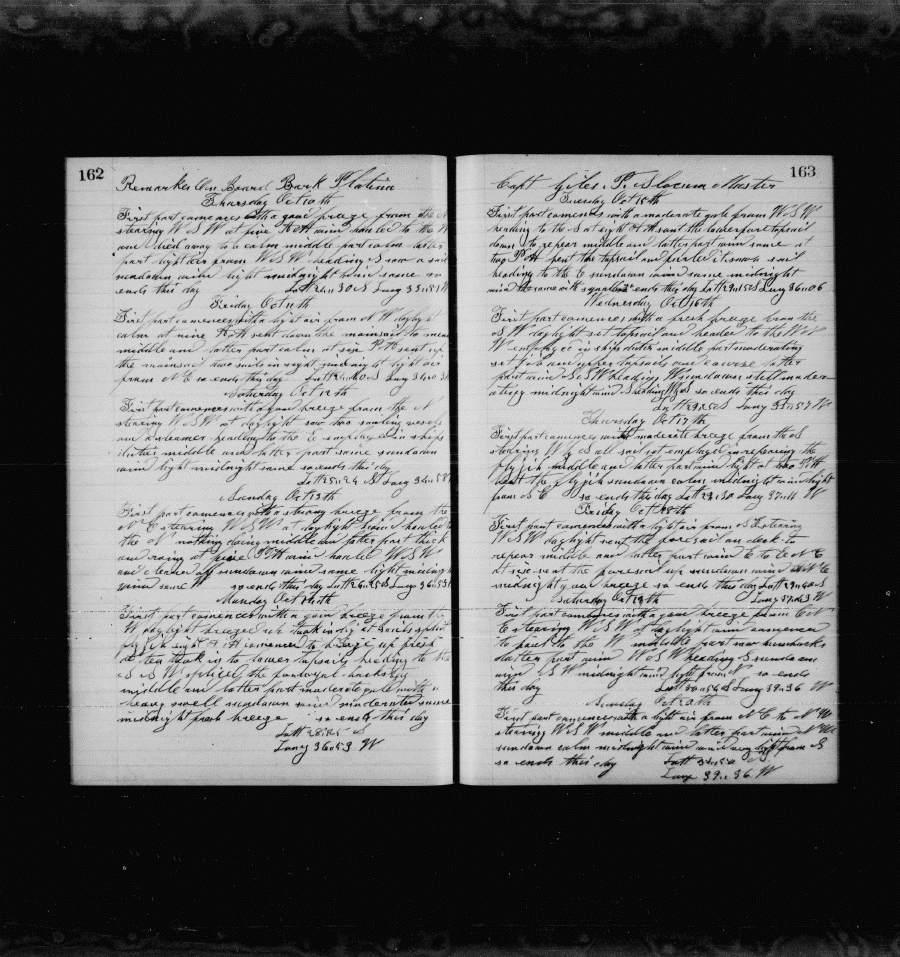 162
Remarks On Board Bark Platina
Thursday Oct 10th
First part comences with a good breeze from the N
stearing W S W at five P M wind hauled to the W
and died away to a calm middle part calm latter
part light air from W S W heading S saw a sail
sundown wind light midnight wind same so
ends this day Latt 24 30 S Long 33 51 W
Friday Oct 11th
First part comences with a light air from N W daylight
calm at nine A M sent down the mainsail to mend
middle and latter part calm at six P M sent up
the mainsail two sails in sight midnight light air
from N E so ends this day Latt 24 40 S Long
Saturday Oct 12th
First part comences with a good breeze from the N
stearing W S W at daylight saw two sailing vessels
and a steamer heading to the E engaged in ships
duties middle and latter part same sundown
wind light midnight same so ends this day
Latt 25 24 S Long 34 58
Sunday Oct 13th
First part comences with a strong breeze from the
N E stearing W S W at daylight wind hauled to
the N nothing doing middle and latter part thick
and rainy at five P M wind hauled W S W
and cleared off sundown wind same light midnight
wind same W so ends this day Latt 26 25 S Long 36 53
Monday Oct 14th
First part comences with a good breeze from the
W daylight breezed up took in light sails split
fly jib eight A M comenced to breeze up fresh
at ten took in to lower topsails heading to the
S S W spliced the foretopgal backstay
middle and latter part moderate gale with a
heavy swell sundown wind moderated some
midnight fresh breeze so ends this day
Latt 28 25 S
Long 36 53 W
163
Capt Giles. P. Slocum Master
Tuesday Oct 15th
First part comences with a moderate gale from W S W
heading to the S at eight A M sent the lower fore topsail
down to repair middle and latter part wind same at
two P M bent the topsail and furled it saw a sail
heading to the E sundown wind same midnight
wind the same with squalls ends this day Latt 29 15 S Long 36 06
Wednesday Oct 16th
First part comences with a fresh breeze from the
S W daylight set topsail and headed to the W N
W employed in ship duties middle part moderating
set jib and upper topsails and courses latter
part wind S S W heading W sundown still moder
ating midnight wind S heading W so ends this day
Latt 29 25 S Long 37 57 W
Thursday Oct 17th
First part comences with moderate breeze from the S
stearing W by S all sail set employed in repairing the
fly jib middle and latter part wind light at two P M
bent the fly jib sundown calm midnight wind light
from S E so ends this day Latt 29 30 Long 37 11 W
Friday Oct 18th
First part comences with a light air from S E stearing
W S W daylight sent the foresail on deck to
repair middle and latter part wind E to E N E
at six sent the foresail up sundown wind N E
midnight good breeze so ends this day Latt 29 40 S
Long 37 43 W
Saturday Oct 19th
First part comences with a good breeze from E N
E stearing W S W at daylight wind comenced
to haul to the W middle part saw humbacks
latter part wind W S W heading S sundown
wind S S W midnight wind light from N so ends
this day Latt 30 54 S Long 39 36 W
Sunday Oct 20th
First part comences with a light air from N E to N W
stearing W S W middle and latter part wind N W
sundown calm midnight wind very light from S
so ends this day Latt 31 50 S
Long 39 36 W